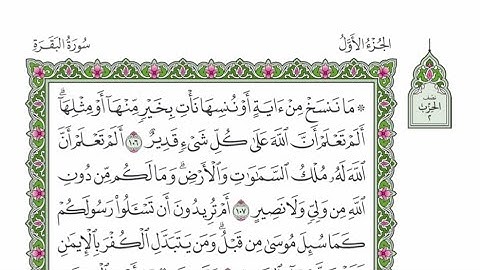 الجُزْءُ الأَوَّلُ
سُورَةُ البَقَرَةِ
نصف
الحزب
٢
* مَا نَنسَخْ مِنْ ءَايَةٍ أَوْ نُنسِهَا نَأْتِ بِخَيْرٍ مِّنْهَآ أَوْ مِثْلِهَآۗ
أَلَمْ تَعْلَمْ أَنَّ ٱللَّهَ عَلَىٰ كُلِّ شَىْءٍ قَدِيرٌ ١٠٦ أَلَمْ تَعْلَمْ أَنَّ
ٱللَّهَ لَهُۥ مُلْكُ ٱلسَّمَٰوَٰتِ وَٱلْأَرْضِۗ وَمَا لَكُم مِّن دُونِ
ٱللَّهِ مِن وَلِىٍّ وَلَا نَصِيرٍ ١٠٧ أَمْ تُرِيدُونَ أَن تَسْـَٔلُوا۟ رَسُولَكُمْ
كَمَا سُئِلَ مُوسَىٰ مِن قَبْلُۗ وَمَن يَتَبَدَّلِ ٱلْكُفْرَ بِٱلْإِيمَٰنِ